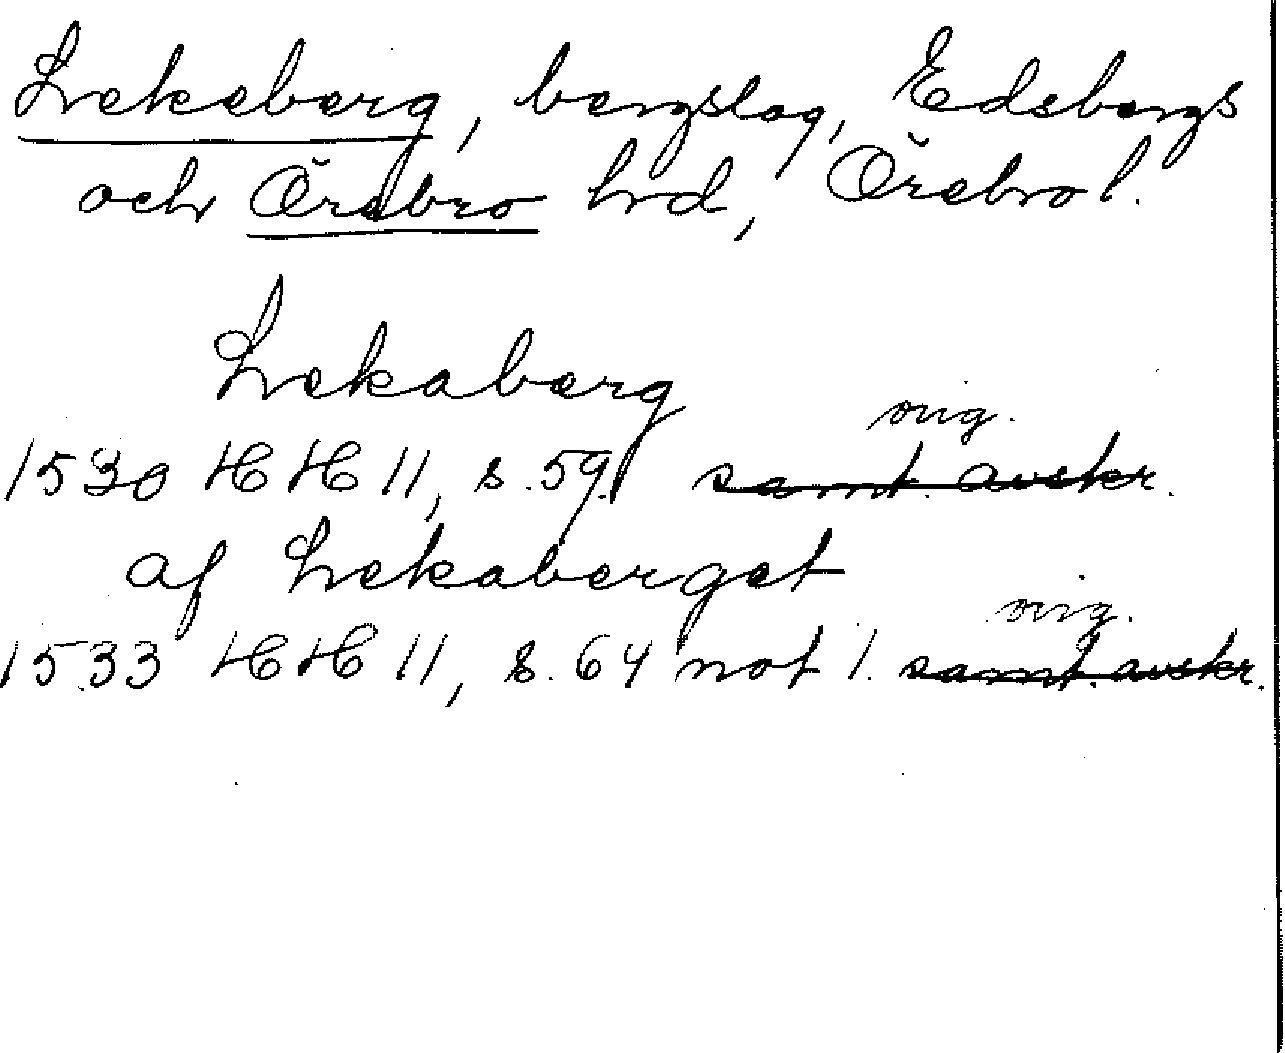 Lekeberg, bergslag, Edsbergs
och Örebro hd, Örebro l.
Lekaberg
orig.
1530 HH 11, s. 59. samt. avskr.
af Lekaberget
orig.
1533 HH 11, s. 64 not 1. samt. avskr.